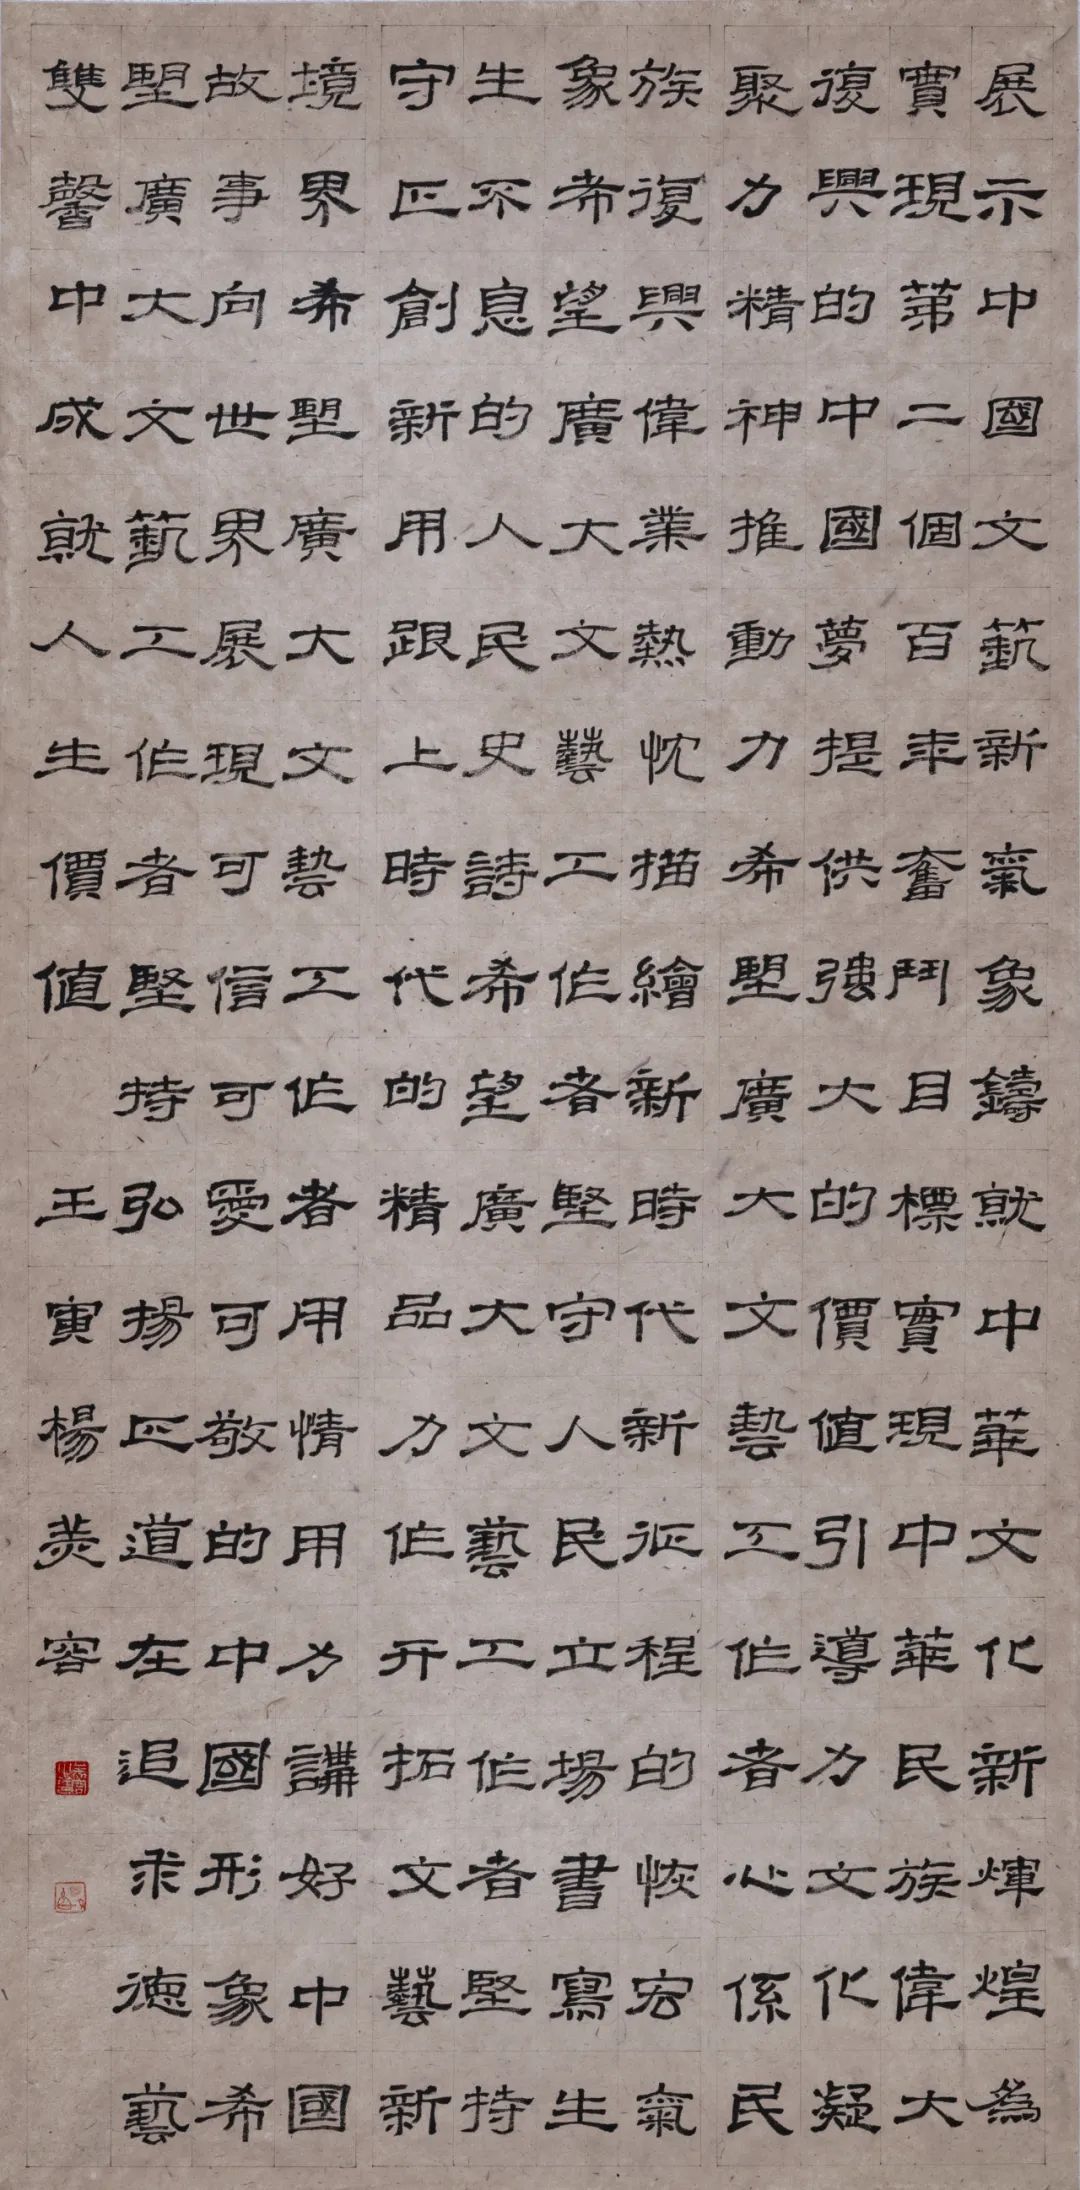 展示中國文藝新氣象鑄就中華文化新煇煌為
實現第二個百年奮鬥目標實現中華民族偉大
復興的中國夢提供強大的價值引導力文化凝
聚力精神推動力希望廣大文藝工作者心係民
族復興偉業熱忱描繪新時代新征程的恢宏氣
象希望廣大文藝工作者堅守人民立場書寫生
生不息的人民史詩希望廣大文藝工作者堅持
守正創新用跟上時代的精品力作开拓文藝新
境界希望廣大文藝工作者用情用力講好中國
故事向世界展現可信可愛可敬的中國形象希
望廣大文藝工作者堅持弘揚正道在追求德藝
雙馨中成就人生價值 壬寅楊容